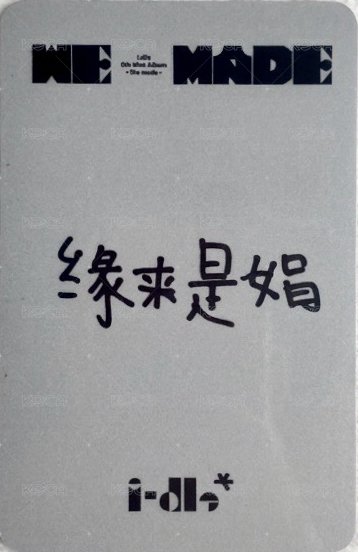 WE MADE
i-dle
8th Mini Album
- We made -
缘来是娟
i-dle*